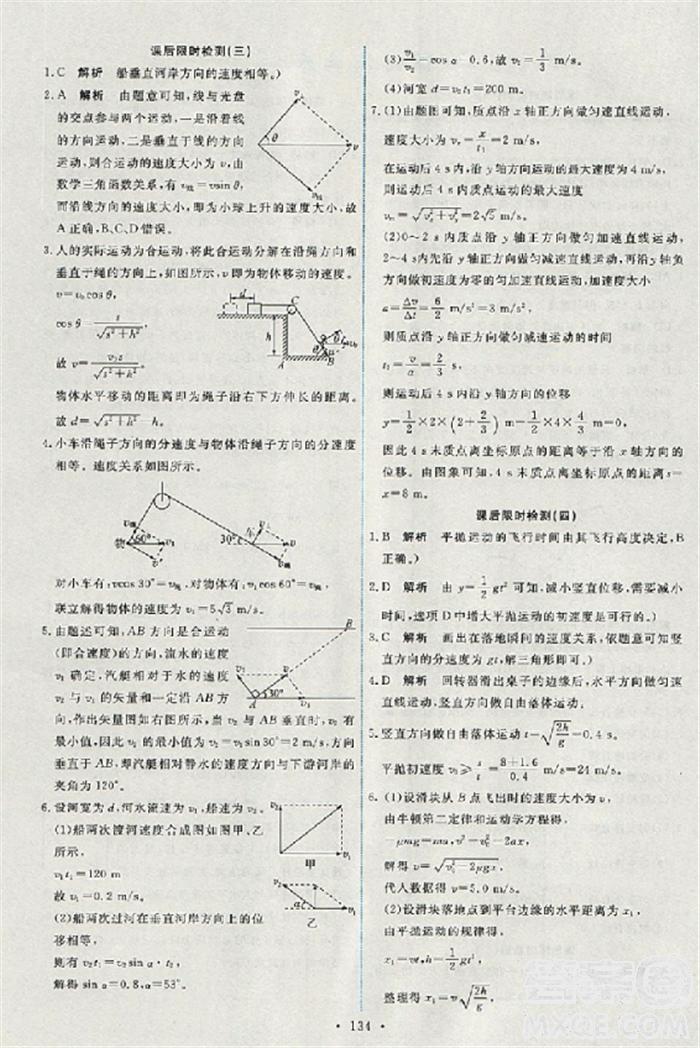 课后限时检测(三)
1.C 解析 船垂直河岸方向的速度相等。)
2.A 解析 由题意可知,线与光盘
的交点参与两个运动,一是沿着线
的方向运动,二是垂直于线的方向
运动,则合运动的速度大小为v,由
数学三角函数关系,有v线=vsin θ,
而沿线方向的速度大小,即为小球上升的速度大小,故
A正确,B、C、D错误。
3.人的实际运动为合运动,将此运动分解在沿绳方向和
垂直于绳的方向上,如图所示,则物体移动的速度。
v=v₀cos θ,
cos θ=s/√(s²+h²)
故 v=v₀s/√(s²+h²)
d C
h
A B
物体水平移动的距离即为绳子沿右下方伸长的距离。
故 d=√(s²+h²)-h。
4.小车沿绳子方向的分速度与物体沿绳子方向的分速度
相等。速度关系如图所示。
物 60° v₁ 30° 车 v
对小车有:vcos 30°=v绳,对物体有:v₁cos 60°=v绳
联立解得物体的速度为v₁=5√3 m/s。
5.由题述可知,AB方向是合运动
(即合速度)的方向,流水的速度
v₁确定,汽艇相对于水的速度
v₂与v₁的矢量和一定沿AB方
向,作出矢量图如右图所示,
由图知,当v₂与AB垂直时,v₂有
最小值,因此v₂的最小值为v₂=v₁sin 30°=2 m/s,方向
垂直于AB,即汽艇相对静水的速度与下游河岸的
夹角为120°。
B
A 30° v₁
6.设河宽为d,河水流速为v₁,船速为v₂。
(1)船两次渡河速度合成如图甲、乙
所示。
v₁t₁=120 m
故v₁=0.2 m/s。
(2)两次过河在垂直河岸方向上的位
移相等,
则有v₂t₁=v₂sin α·t₂
解得sin α=0.8,α=53°。
v₂ v₁
甲
v₂ α v₁
乙
(3)v₁/v₂=cos α=0.6,故v₂=1/3 m/s。
(4)河宽d=v₂t₁=200 m。
7.(1)由题图可知,质点沿x轴正方向做匀速直线运动,
速度大小为vₓ=x/t₁=2 m/s,
在运动后4 s内,沿y轴方向运动的最大速度为4 m/s,
则运动后4 s内质点运动的最大速度
vₘ=√(vₓ²+v_y²)=2√5 m/s。
(2)0~2 s内质点沿y轴正方向做匀加速直线运动,
2~4 s内先沿y轴正方向做匀减速直线运动,再沿y轴
负方向做初速度为零的匀加速直线运动,加速度大小
a=Δv/Δt=6/2 m/s²=3 m/s²
则质点沿y轴正方向做匀减速运动的时间
t₂=v/a=2/3 s
则运动后4 s内沿y轴方向的位移
y=1/2×2×(2+2/3) m-1/2×4×4/3 m=0
因此4 s末质点离坐标原点的距离等于沿x轴方向的
位移。由图象可知,4 s末质点离坐标原点的距离s=
x=8 m。
课后限时检测(四)
1.B 解析 平抛运动的飞行时间由其飞行高度决定,B
正确。)
2.D 解析 由y=1/2gt²可知,减小竖直位移,需要减小
时间,选项D中增大平抛运动的初速度是可行的。)
3.C 解析 画出在落地瞬间的速度关系,依题意可知竖
直方向的分速度为gt,解得v₀=gt/tan θ。)
4.D 解析 回转器滑出桌子的边缘后,水平方向做匀速
直线运动,竖直方向做自由落体运动。
5.竖直方向做自由落体运动 t=√(2h/g)=0.4 s,
平抛初速度 v₀≥s/t=(8+1.6)/0.4 m/s=24 m/s。
6.(1)设滑块从B点飞出时的速度大小为v,
由牛顿第二定律和运动学方程,
-μmg=ma,v²-v₀²=2ax,
解得 v=√(v₀²-2μgx)
代入数据解得v=5.0 m/s。
(2)设滑块落地点与平台边缘的水平距离为x₁,
由平抛运动的规律得:
x₁=vt,h=1/2gt²
整理得 x₁=v√(2h/g)
· 134 ·